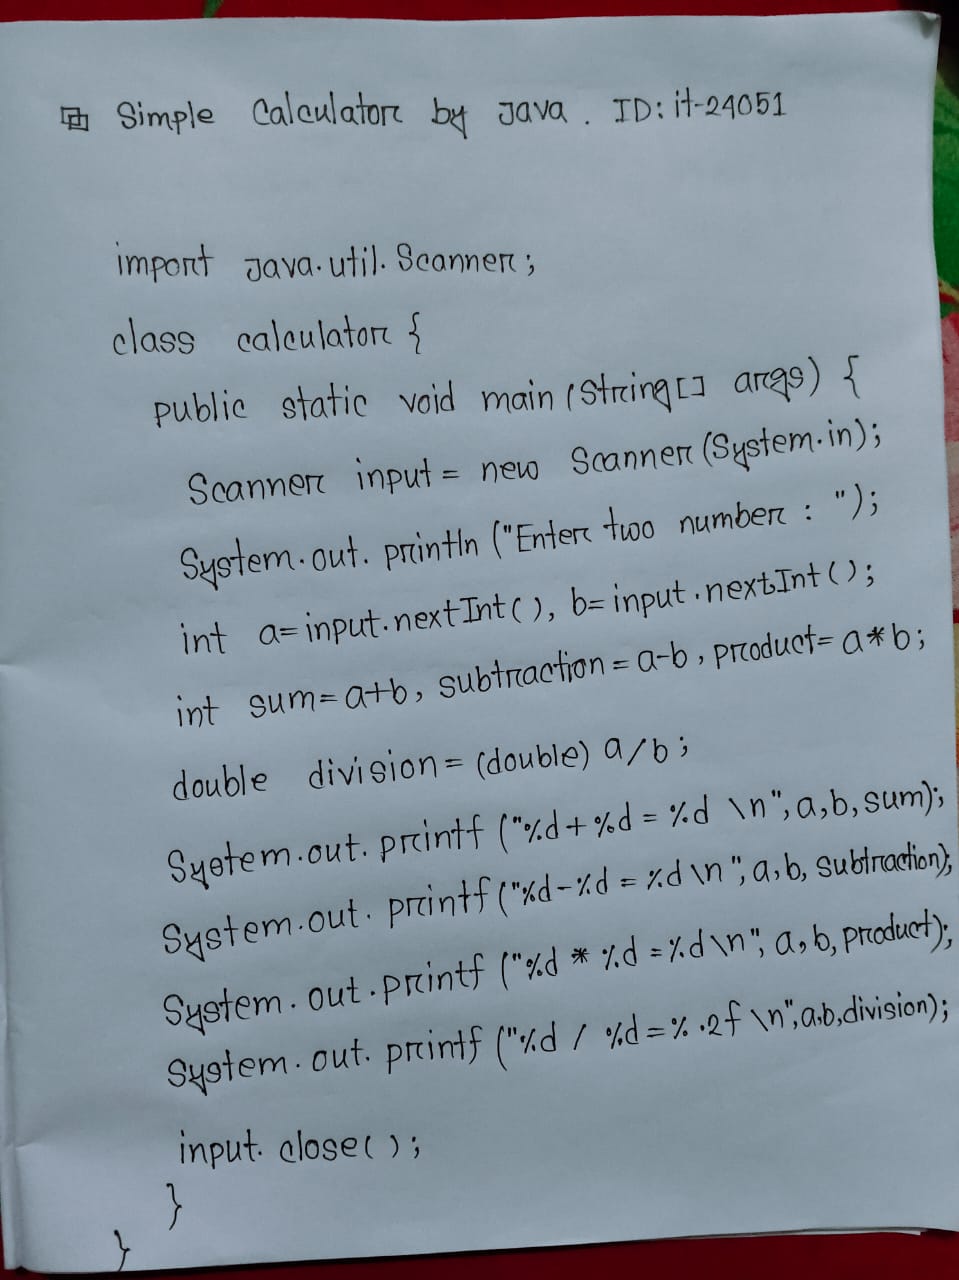 Simple Calculator by Java. ID: it-24051
import java.util.Scanner;
class calculator {
public static void main (String[] args) {
Scanner input = new Scanner (System.in);
System.out.println ("Enter two number : ");
int a=input.nextInt(), b=input.nextInt();
int sum=a+b, subtraction = a-b, product= a*b;
double division = (double) a/b;
System.out.printf ("%d+%d = %d \n", a,b,sum);
System.out.printf ("%d-%d = %d \n", a,b, subtraction);
System.out.printf ("%d * %d =%d\n", a,b, product);
System.out.printf ("%d / %d = %.2f \n",a,b,division);
input.close();
}
}